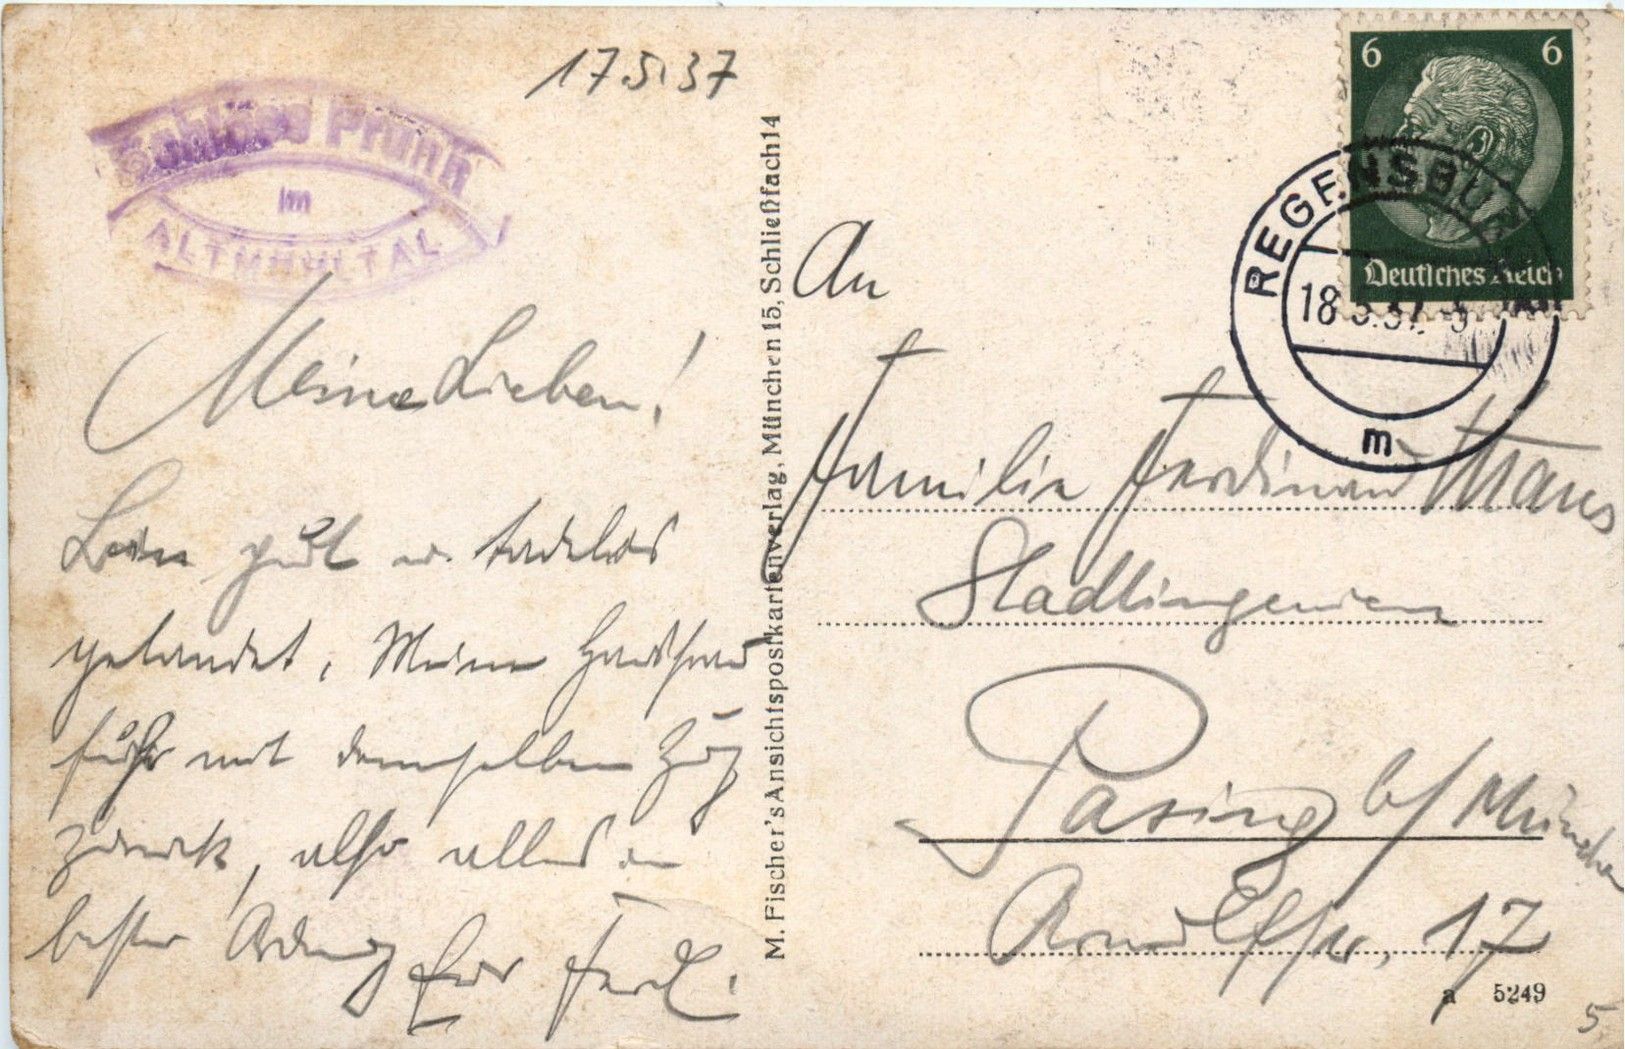 17.5.37
Schloss Prunn
im
ALTMÜHLTAL
Meine Lieben!
Bin gut u. tadellos
gelandet, Meine Hausfrau
fuhr mit demselben Zug
zurück, also alles in
bester Ordnung
Euer Ferd.
M. Fischer's Ansichtspostkartenverlag, München 15, Schließfach 14
6 6
Deutsches Reich
REGENSBURG
18.5.37
m
An
Familie Ferdinand
Stadtingenieur
Pasing b/München
Arnulfstr. 17
a 5249
5